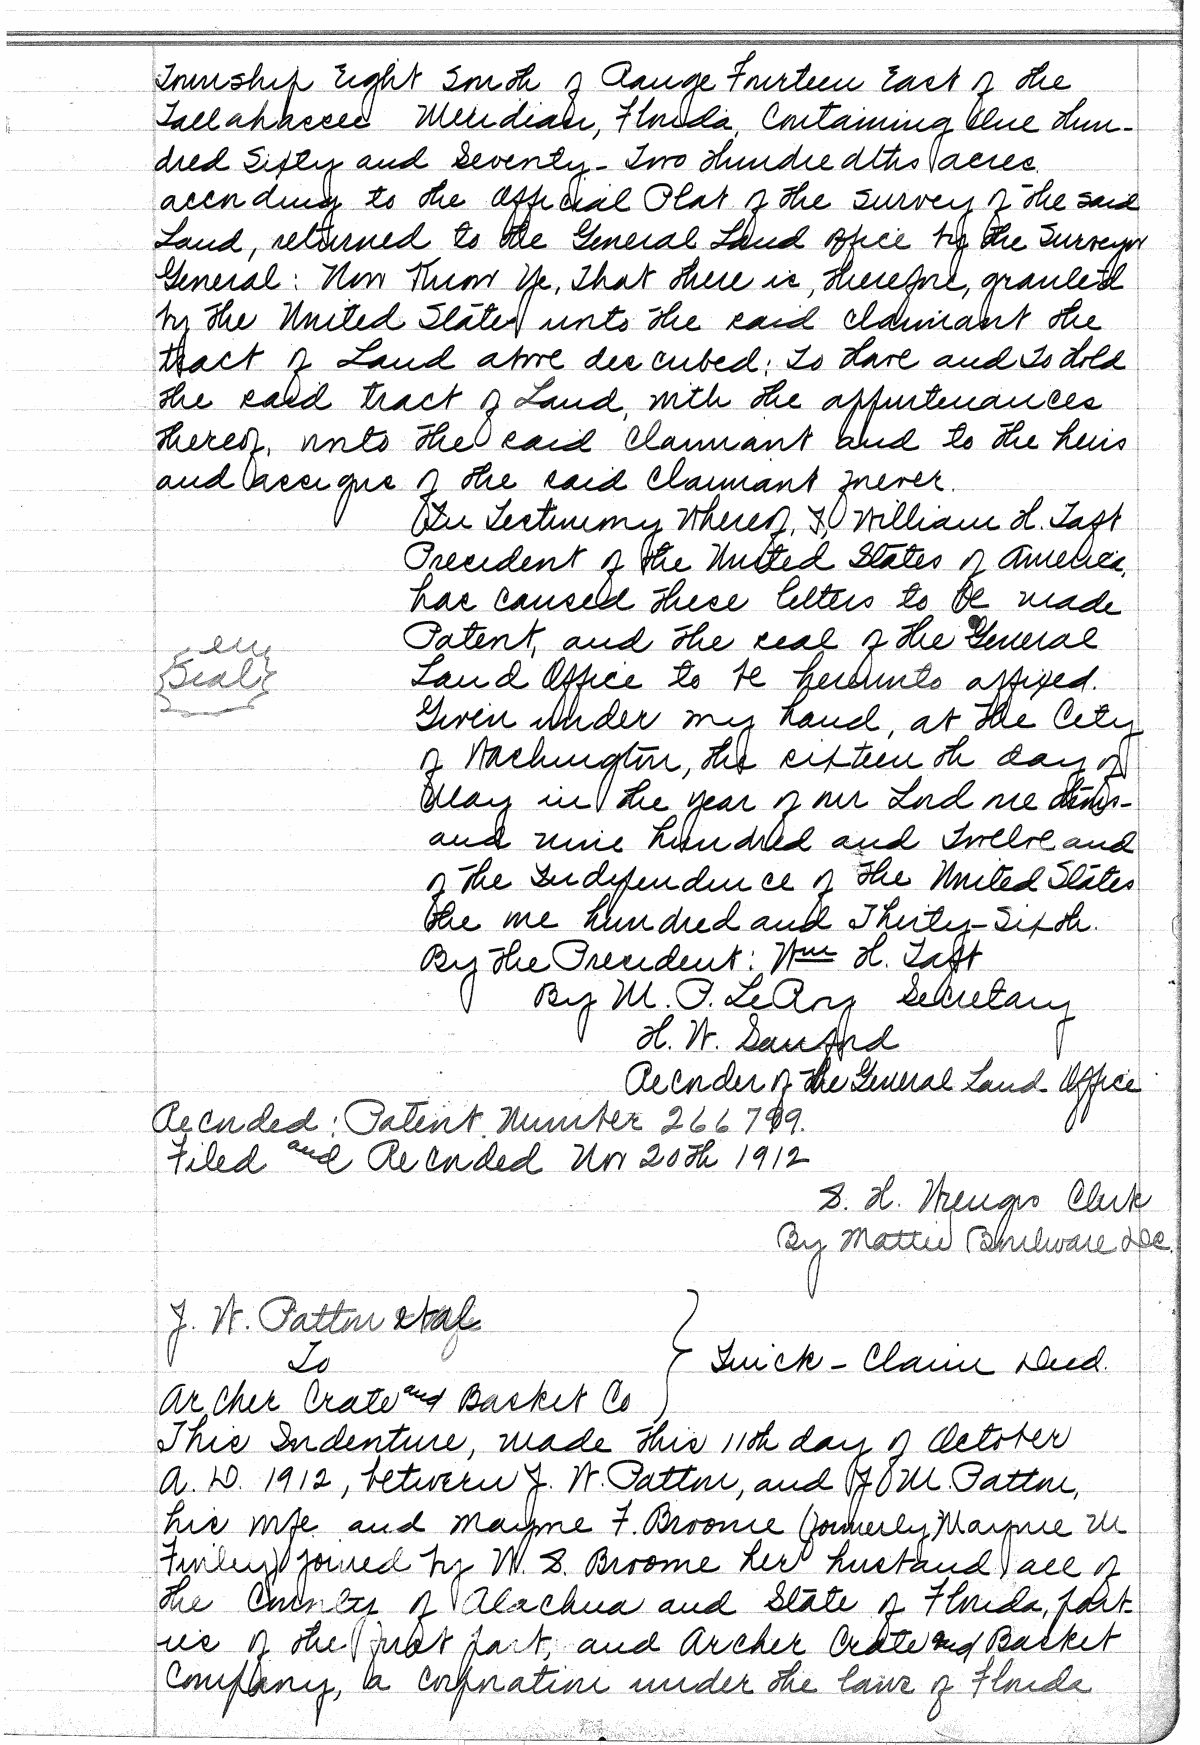 Township Eight South of Range Fourteen East of the
Tallahassee Meridian, Florida, Containing One Hun-
dred Sixty and Seventy-Two Hundredths acres
according to the Official Plat of the Survey of the said
Land, returned to the General Land office by the Surveyor
General: Now Know Ye, That there is, therefore, granted
by the United States unto the said claimant the
tract of Land above described; To Have and To Hold
the said tract of Land, with the appurtenances
thereof, unto the said Claimant and to the heirs
and assigns of the said Claimant forever.
In Testimony Whereof, I, William H. Taft
President of the United States of America,
has caused these letters to be made
Patent, and the seal of the General
Seal
Land Office to be hereunto affixed.
Given under my hand, at the City
of Washington, the sixteenth day of
May in the year of our Lord one thous-
and nine hundred and Twelve and
of the Independence of the United States
the one hundred and Thirty-Sixth.
By the President: Wm H. Taft
By M. P. LeRoy Secretary
H. W. Sanford
Recorder of the General Land Office
Recorded: Patent Number 266799.
Filed and Recorded Nov 20th 1912
S. H. Wienges Clerk
By Mattie Boulware D.C.
J. W. Patton et al
To
Archer Crate and Basket Co
Quick-Claim Deed.
This Indenture, made this 11th day of October
A. D. 1912, between J. W. Patton, and J M. Patton,
his wife and Mayme F. Broome (formerly Mayme M
Finley) joined by W. S. Broome her husband, all of
the County of Alachua and State of Florida, part-
ies of the first part, and Archer Crate and Basket
Company, a corporation under the laws of Florida